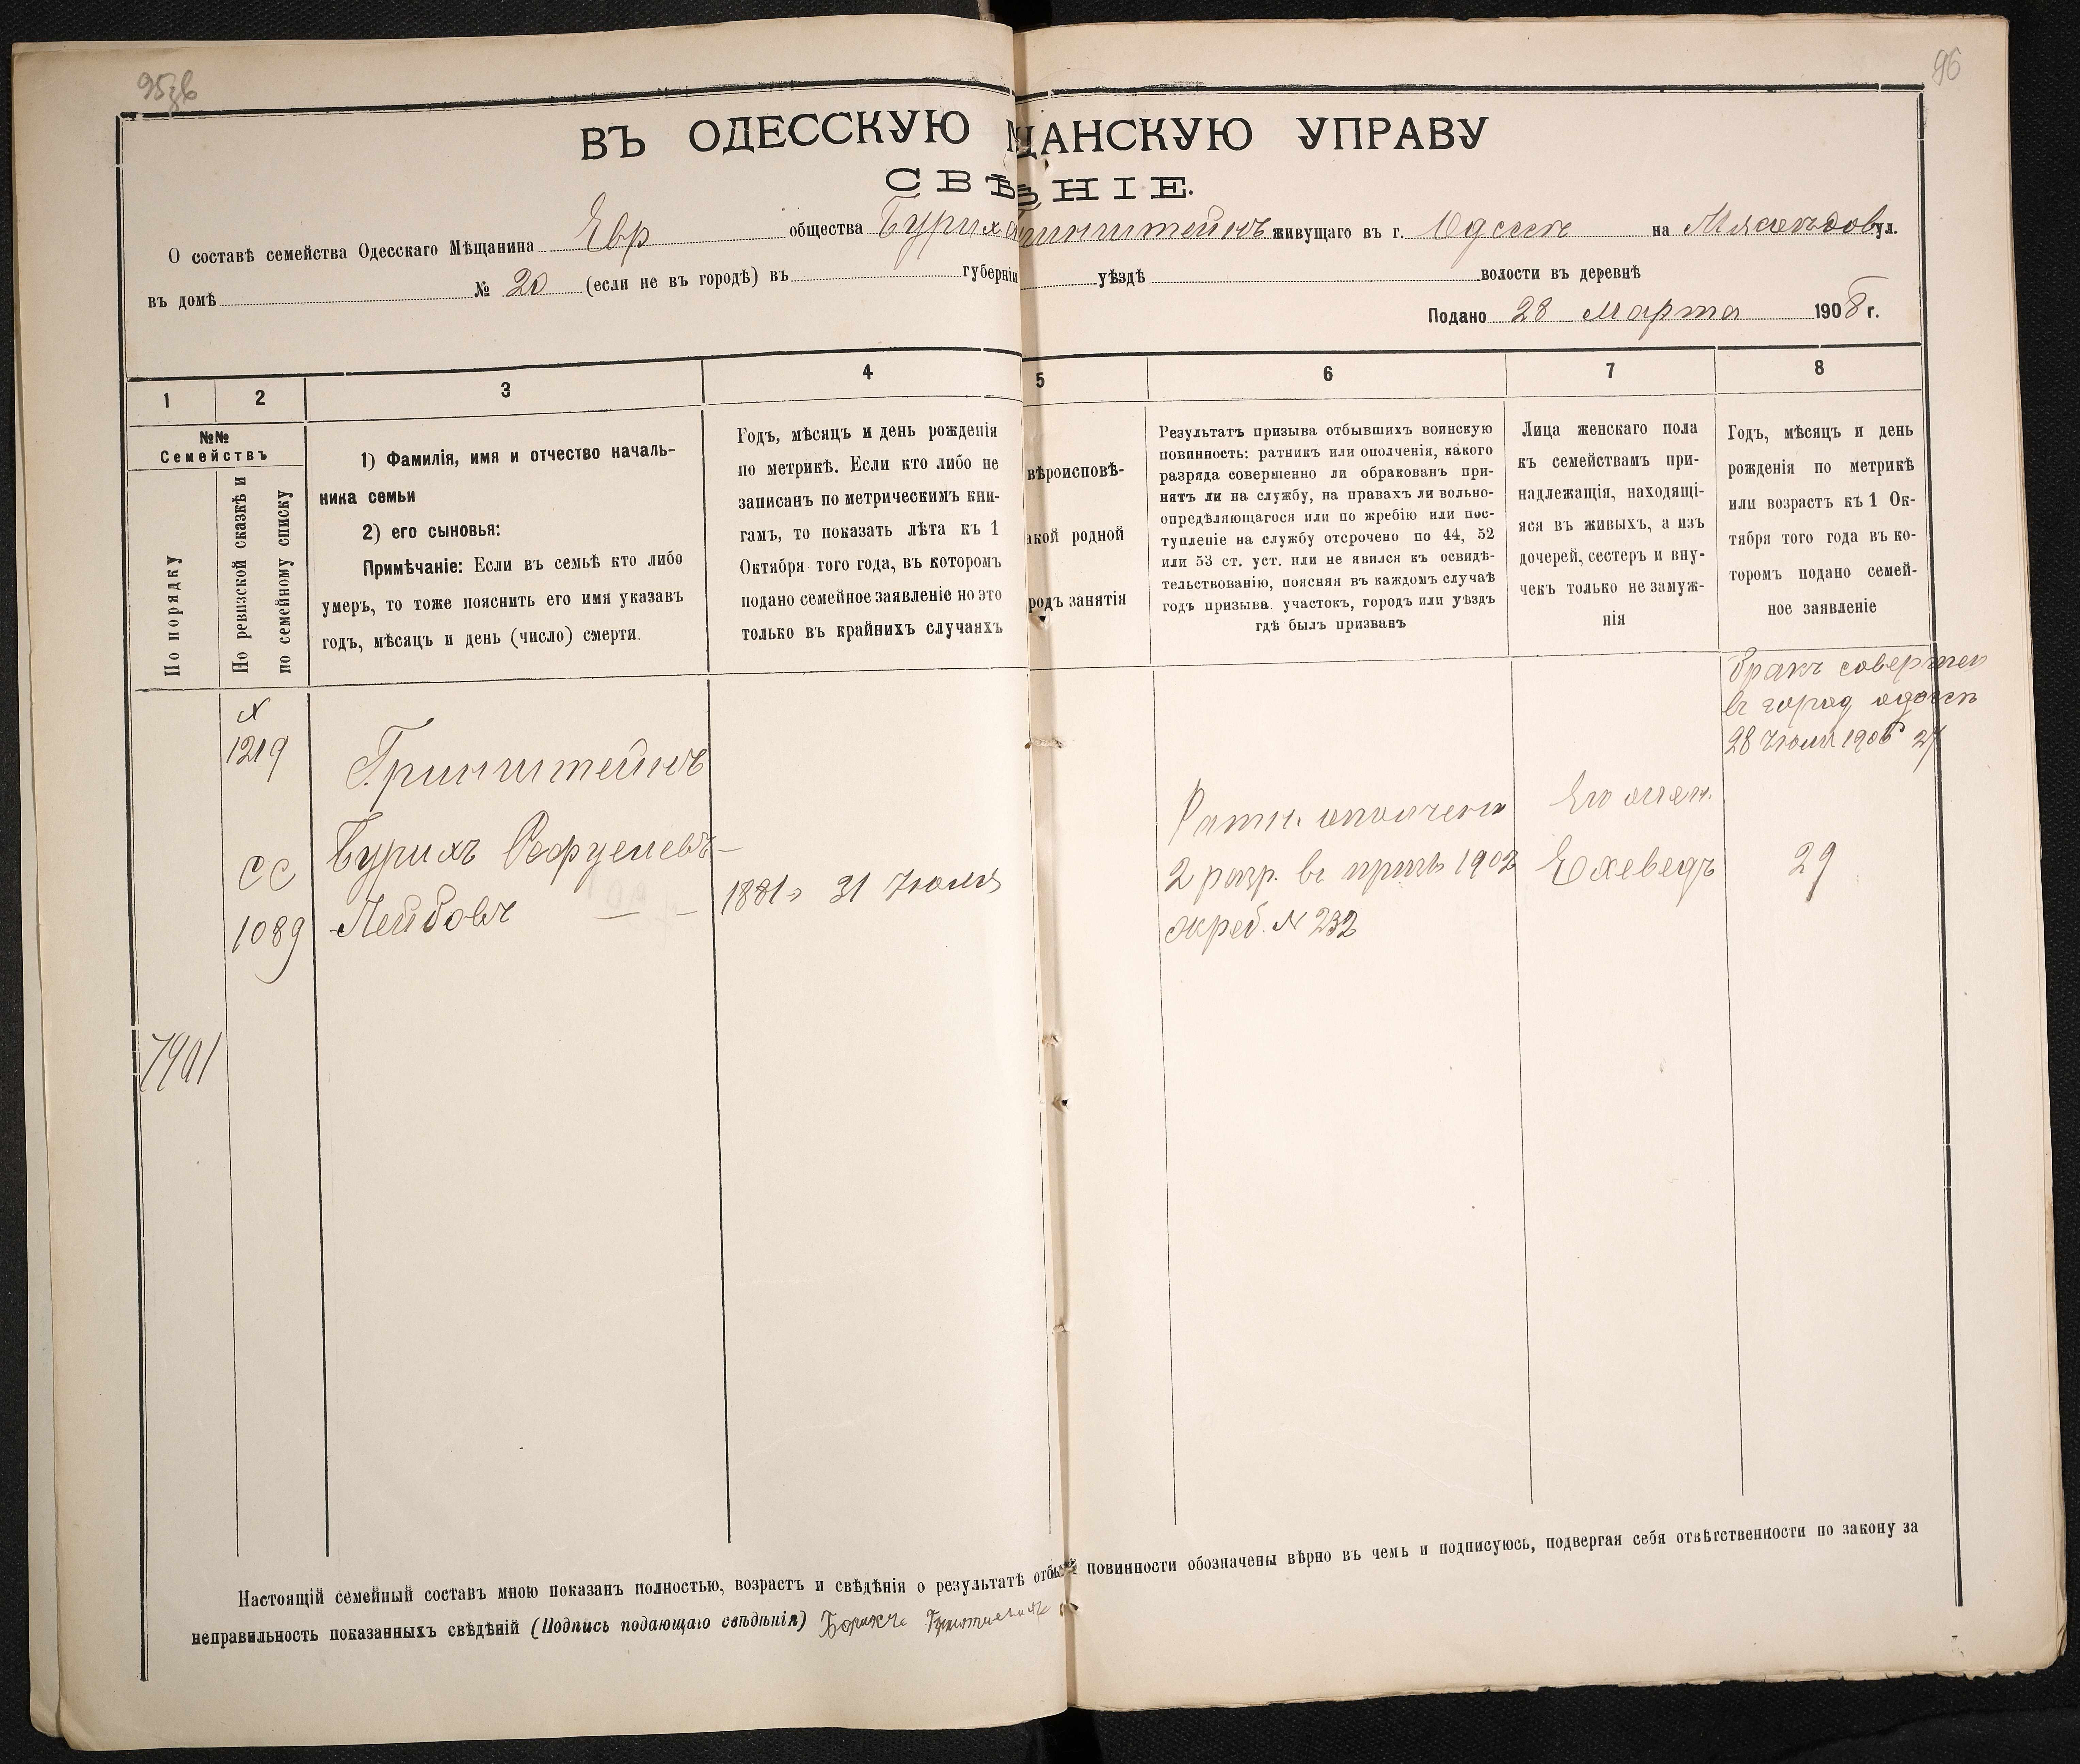 96
ВЪ ОДЕССКУЮ ЩАНСКУЮ УПРАВУ
СВѢНІЕ.
О составѣ семейства Одесскаго Мѣщанина Евр общества Буриха инштейнъ живущаго въ г. Одессѣ на Мясоѣдов ул.
въ домѣ № 20 (если не въ городѣ) въ губерніи уѣздѣ волости въ деревнѣ
Подано 28 Марта 1908 г.
1 2 3 4 5 6 7 8
№№
Семействъ
По порядку
По ревизской сказкѣ и
по семейному списку
1) Фамилія, имя и отчество началь-
ника семьи
2) его сыновья:
Примѣчаніе: Если въ семьѣ кто либо
умеръ, то тоже пояснить его имя указавъ
годъ, мѣсяцъ и день (число) смерти.
Годъ, мѣсяцъ и день рожденія
по метрикѣ. Если кто либо не
записанъ по метрическимъ кни-
гамъ, то показать лѣта къ 1
Октября того года, въ которомъ
подано семейное заявленіе но это
только въ крайнихъ случаяхъ
вѣроисповѣ-
акой родной
родъ занятія
Результатъ призыва отбывшихъ воинскую
повинность: ратникъ или ополченія, какого
разряда совершенно ли обракованъ при-
нятъ ли на службу, на правахъ ли вольно-
опредѣляющагося или по жребію или пос-
тупленіе на службу отсрочено по 44, 52
или 53 ст. уст. или не явился къ освидѣ-
тельствованію, поясняя въ каждомъ случаѣ
годъ призыва. участокъ, городъ или уѣздъ
гдѣ былъ призванъ
Лица женскаго пола
къ семействамъ при-
надлежащія, находящі-
яся въ живыхъ, а изъ
дочерей, сестеръ и вну-
чекъ только не замуж-
нія
Годъ, мѣсяцъ и день
рожденія по метрикѣ
или возрастъ къ 1 Ок-
тября того года въ ко-
торомъ подано семей-
ное заявленіе
бракъ совершен
въ город одессѣ
28 Июля 1906
N
1219
Гринштейнъ
Бурихъ Рафуелевъ —
СС
1089
Лейбовъ — —
1881 г 31 Июля
Ратн. ополчения
2 разр. въ приз 1902
жреб. N 232
Его жен.
Єхеведъ
29
Настоящій семейный составъ мною показанъ полностью, возрастъ и свѣдѣнія о результатѣ отбы повинности обозначены вѣрно въ чемъ и подписуюсь, подвергая себя отвѣтственности по закону за
неправильность показанныхъ свѣдѣній (Подпись подающаго свѣдѣнія)